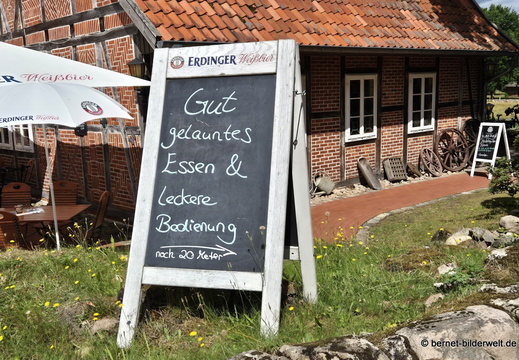 ERDINGER Weißbier
Gut
gelauntes
Essen &
leckere
Bedienung
noch 20 Meter
ERDINGER Weißbier
© bernet-bilderwelt.de